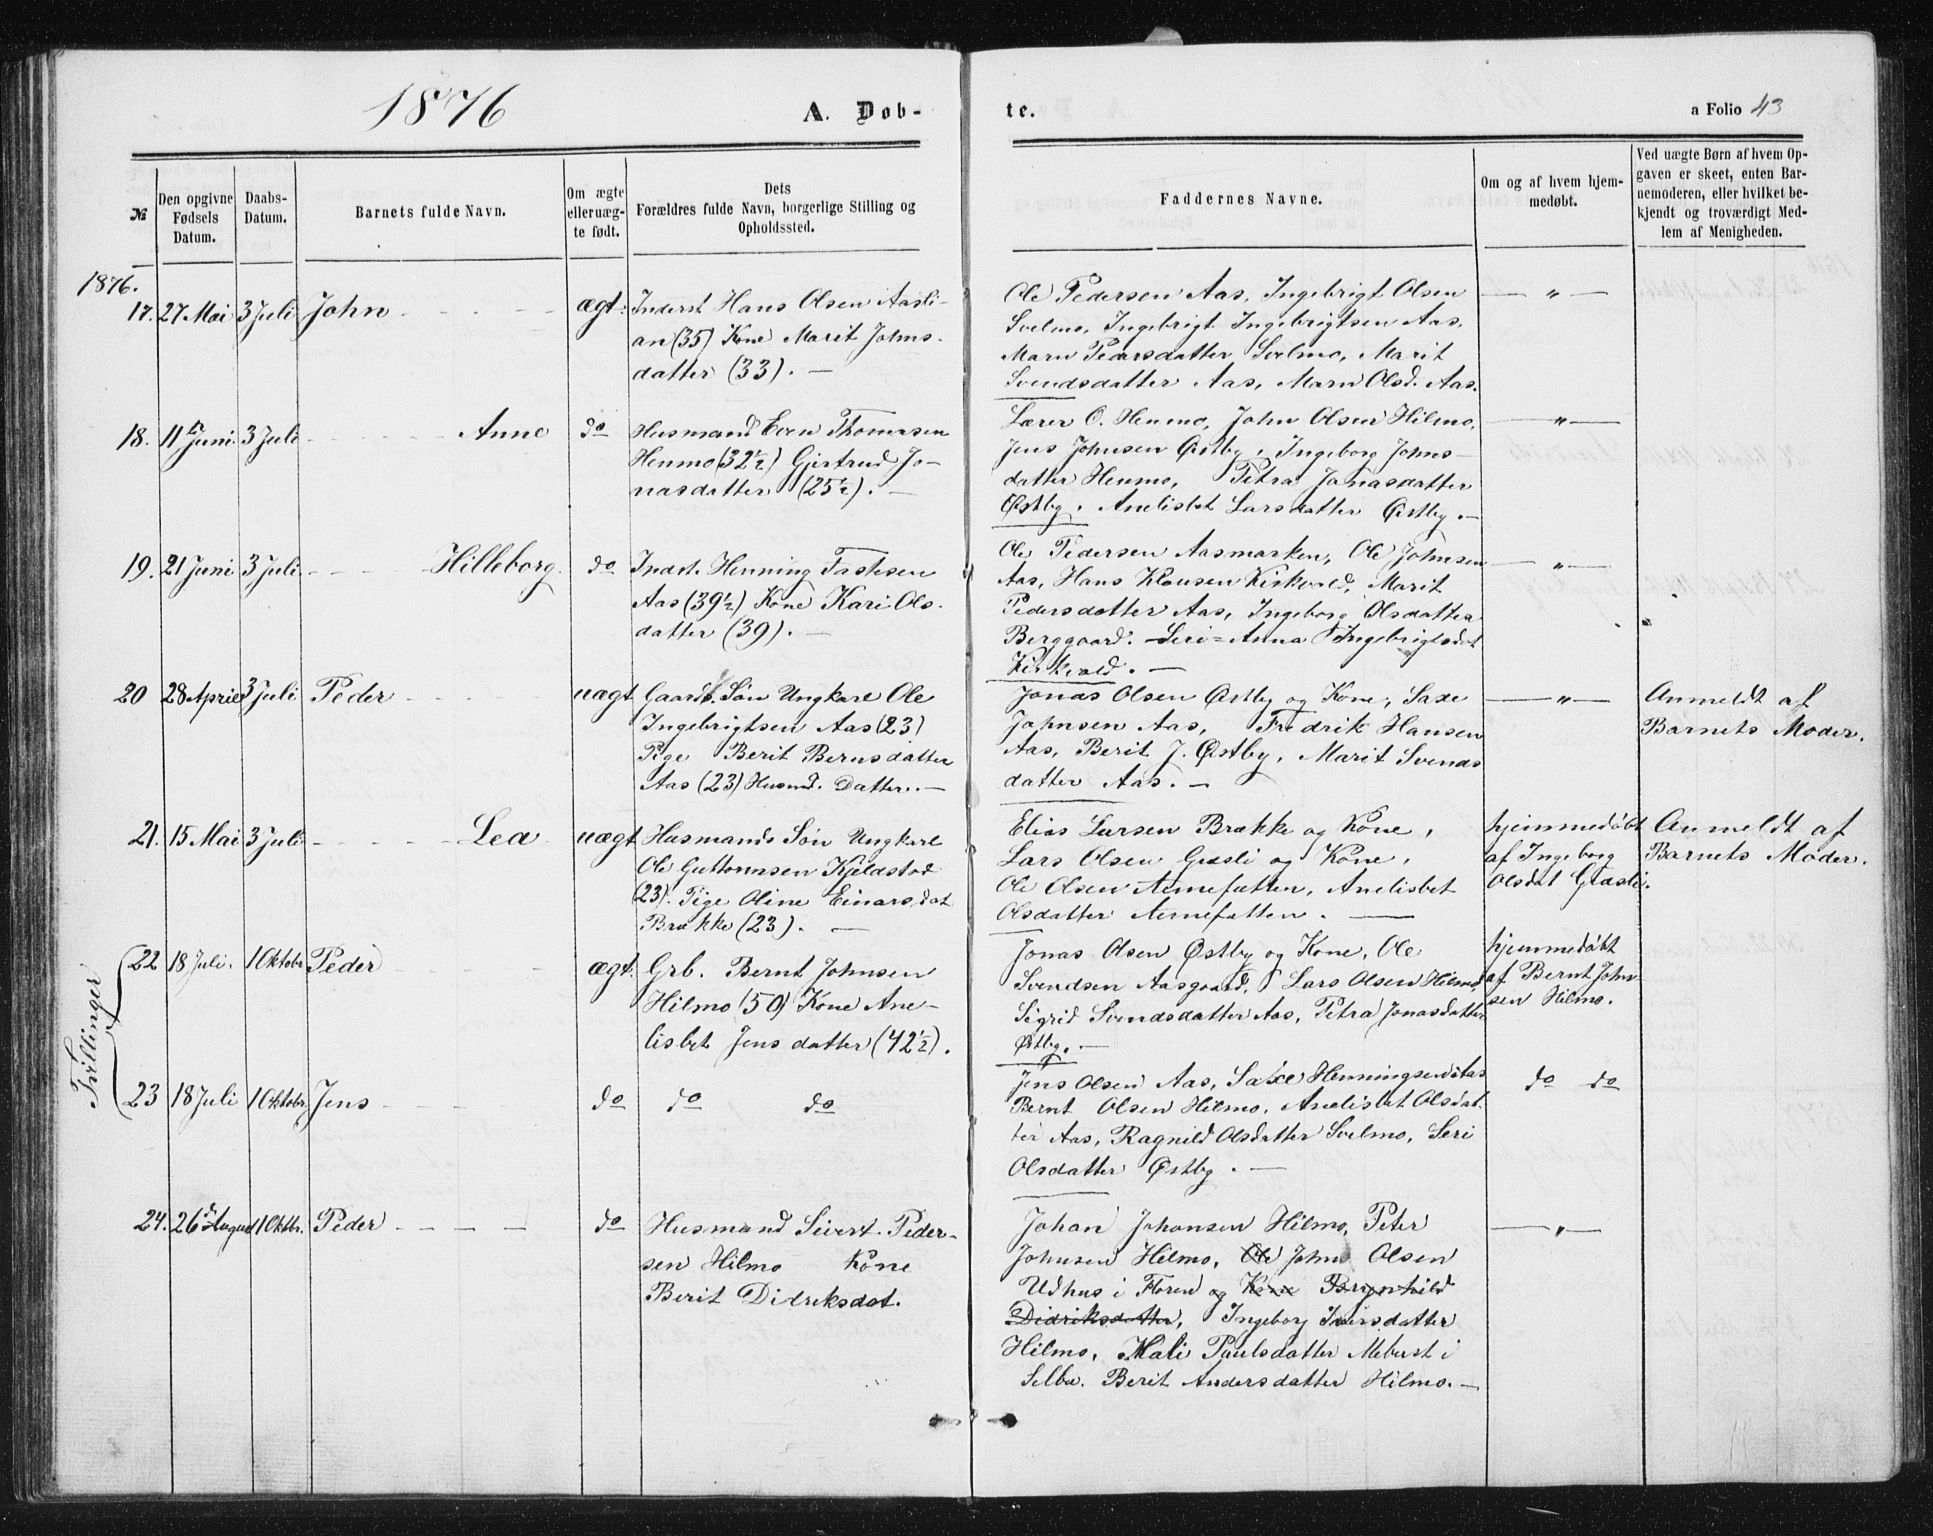 1876
A. Døb-
te.
a Folio 43
№
Den opgivne Fødsels Datum.
Daabs-Datum.
Barnets fulde Navn.
Om ægte eller uæg-te født.
Dets Forældres fulde Navn, borgerlige Stilling og Opholdssted.
Faddernes Navne.
Om og af hvem hjem-medøbt.
Ved uægte Børn af hvem Op-gaven er skeet, enten Bar-nemoderen, eller hvilket be-kjendt og troværdigt Med-lem af Menigheden.
1876.
17. 27 Mai 3 Juli John ægt. Inderst Hans Olsen Aasli-
an (35) Kone Marit Johns-
datter (33). —
Ole Pedersen Aas, Ingebrigt Olsen — " —
Svelmo, Ingebrigt Ingebrigtsen Aas,
Marn Pedersdatter Svelmo, Marit
Svendsdatter Aas, Marn Olsd. Aas.
18. 11te Juni 3 Juli Anne do Husmand Even Thomasen
Henmo (32½) Gjertrud Jo-
nasdatter (25½). —
Lærer O. Henmo, John Olsen Hilmo, — " —
Jens Johnsen Østby, Ingeborg Johns-
datter Henmo, Petra Jonasdatter
Østby, Anelisbet Larsdatter Østby. —
19. 21 Juni 3 Juli Hilleborg do Indst. Henning Fastesen
Aas (39½) Kone Kari Ols-
datter (39). —
Ole Pedersen Aasmarken, Ole Johnsen — " —
Aas, Hans Klausen Kirkvold, Marit
Pedersdatter Aas, Ingeborg Olsdatter
Berggaard. Seri=Anna Ingebrigtsdat
Kirkvold. —
20 28 April 3 Juli Peder uægt Gaardb. Søn Ungkarl Ole
Ingebrigtsen Aas (23)
Pige Berit Berntsdatter
Aas (23) Husmd. Datter. —
Jonas Olsen Østby og Kone, Saxe — " — Anmeldt af
Johnsen Aas, Fredrik Hansen Barnets Moder.
Aas, Berit J. Østby, Marit Svends
datter Aas. —
21. 15 Mai 3 Juli Lea uægt Husmands Søn Ungkarl
Ole Guttormsen Kjeldstad
(23). Pige Oline Einarsdat
Brække (23). —
Elias Larsen Brække og Kone, hjemmedøbt Anmeldt af
Lars Olsen Græsli og Kone, af Ingeborg Barnets Moder.
Ole Olsen Aunefatten, Anelisbet Olsdat Græsli.
Olsdatter Aunefatten. —
Tvillinger
22 18 Juli. 1 Oktobr Peder ægt. Grb. Bernt Johnsen
Hilmo (50) Kone Ane-
lisbet Jensdatter (42½).
Jonas Olsen Østby og Kone, Ole hjemmedøbt
Svendsen Aasgaard, Lars Olsen Hilmo, af Bernt John
Sigrid Svendsdatter Aas, Petra Jonasdatter sen Hilmo.
Østby. —
23 18 Juli 1 Oktobr. Jens do do do
Jens Olsen Aas, Saxe Henningsen Aas do do
Bernt Olsen Hilmo, Anelisbet Olsdat-
ter Aas, Ragnild Olsdatter Svelmo, Seri
Olsdatter Østby. —
24. 26d August 1 Oktbr. Peder do Husmand Sivert Peder-
sen Hilmo Kone
Berit Didriksdat.
Johan Johansen Hilmo, Peter — " —
Johnsen Hilmo, Ole John Olsen
Udhus i Floren og Kone Brynhild
Didriksdatter, Ingeborg Iversdatter
Hilmo, Mali Paulsdatter Mebust i
Selbu. Berit Andersdatter Hilmo. —